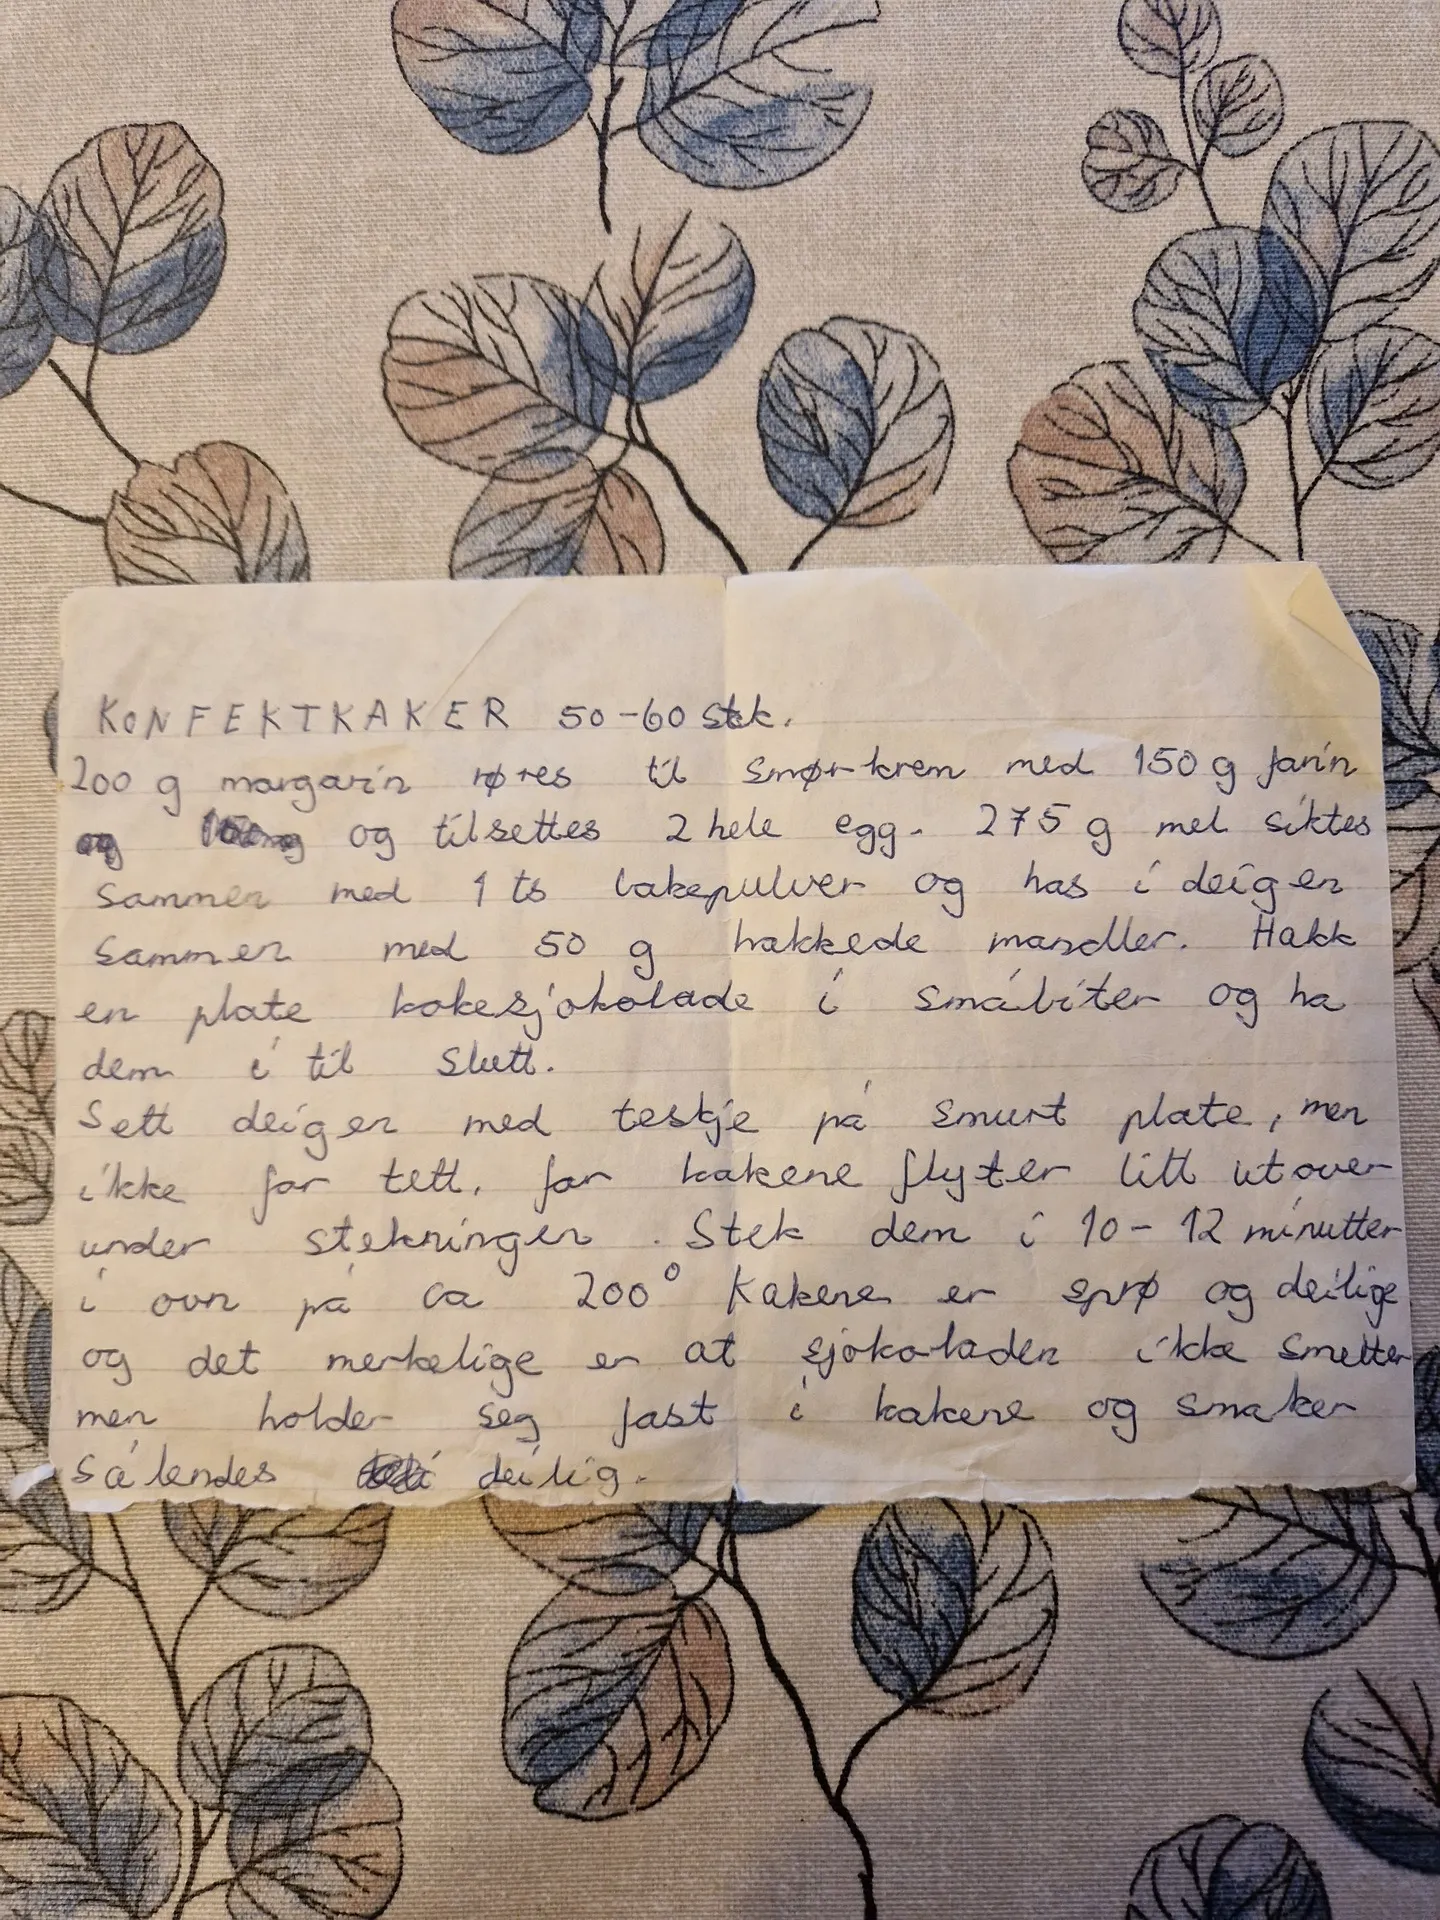 KONFEKTKAKER 50-60 stk.
200 g margarin røres til smørkrem med 150 g farin
og og tilsettes 2 hele egg. 275 g mel siktes
sammen med 1 ts bakepulver og has i deigen
sammen med 50 g hakkede mandler. Hakk
en plate kokesjokolade i småbiter og ha
dem i til slutt.
Sett deigen med teskje på smurt plate, men
ikke for tett, for kakene flyter litt utover
under stekningen. Stek dem i 10-12 minutter
i ovn på ca 200° Kakene er sprø og deilige
og det merkelige er at sjokoladen ikke smelter
men holder seg fast i kakene og smaker
sålendes deilig.